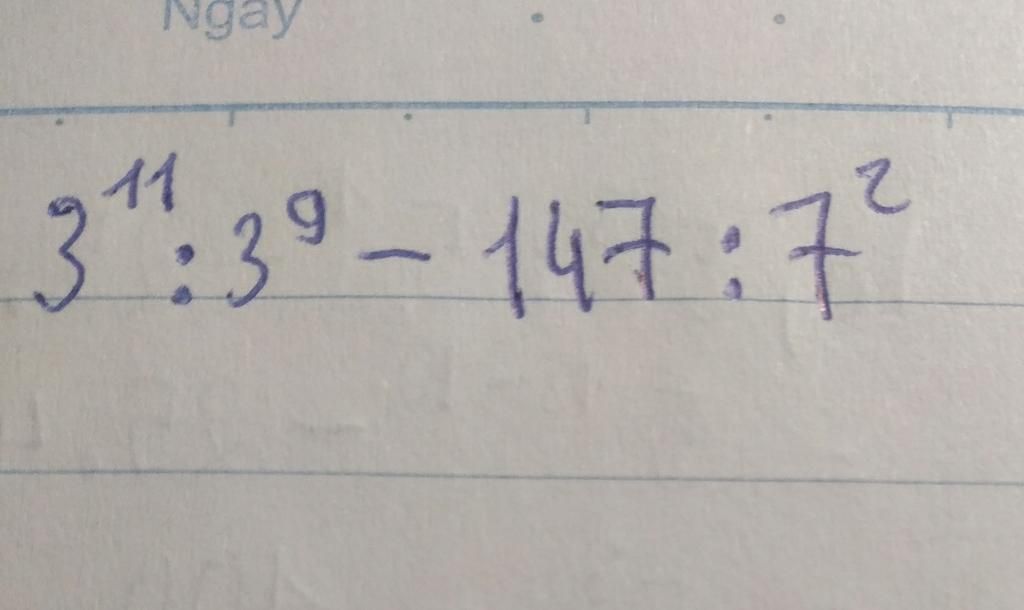 Ngày
3¹¹ : 3⁹ - 147 : 7²